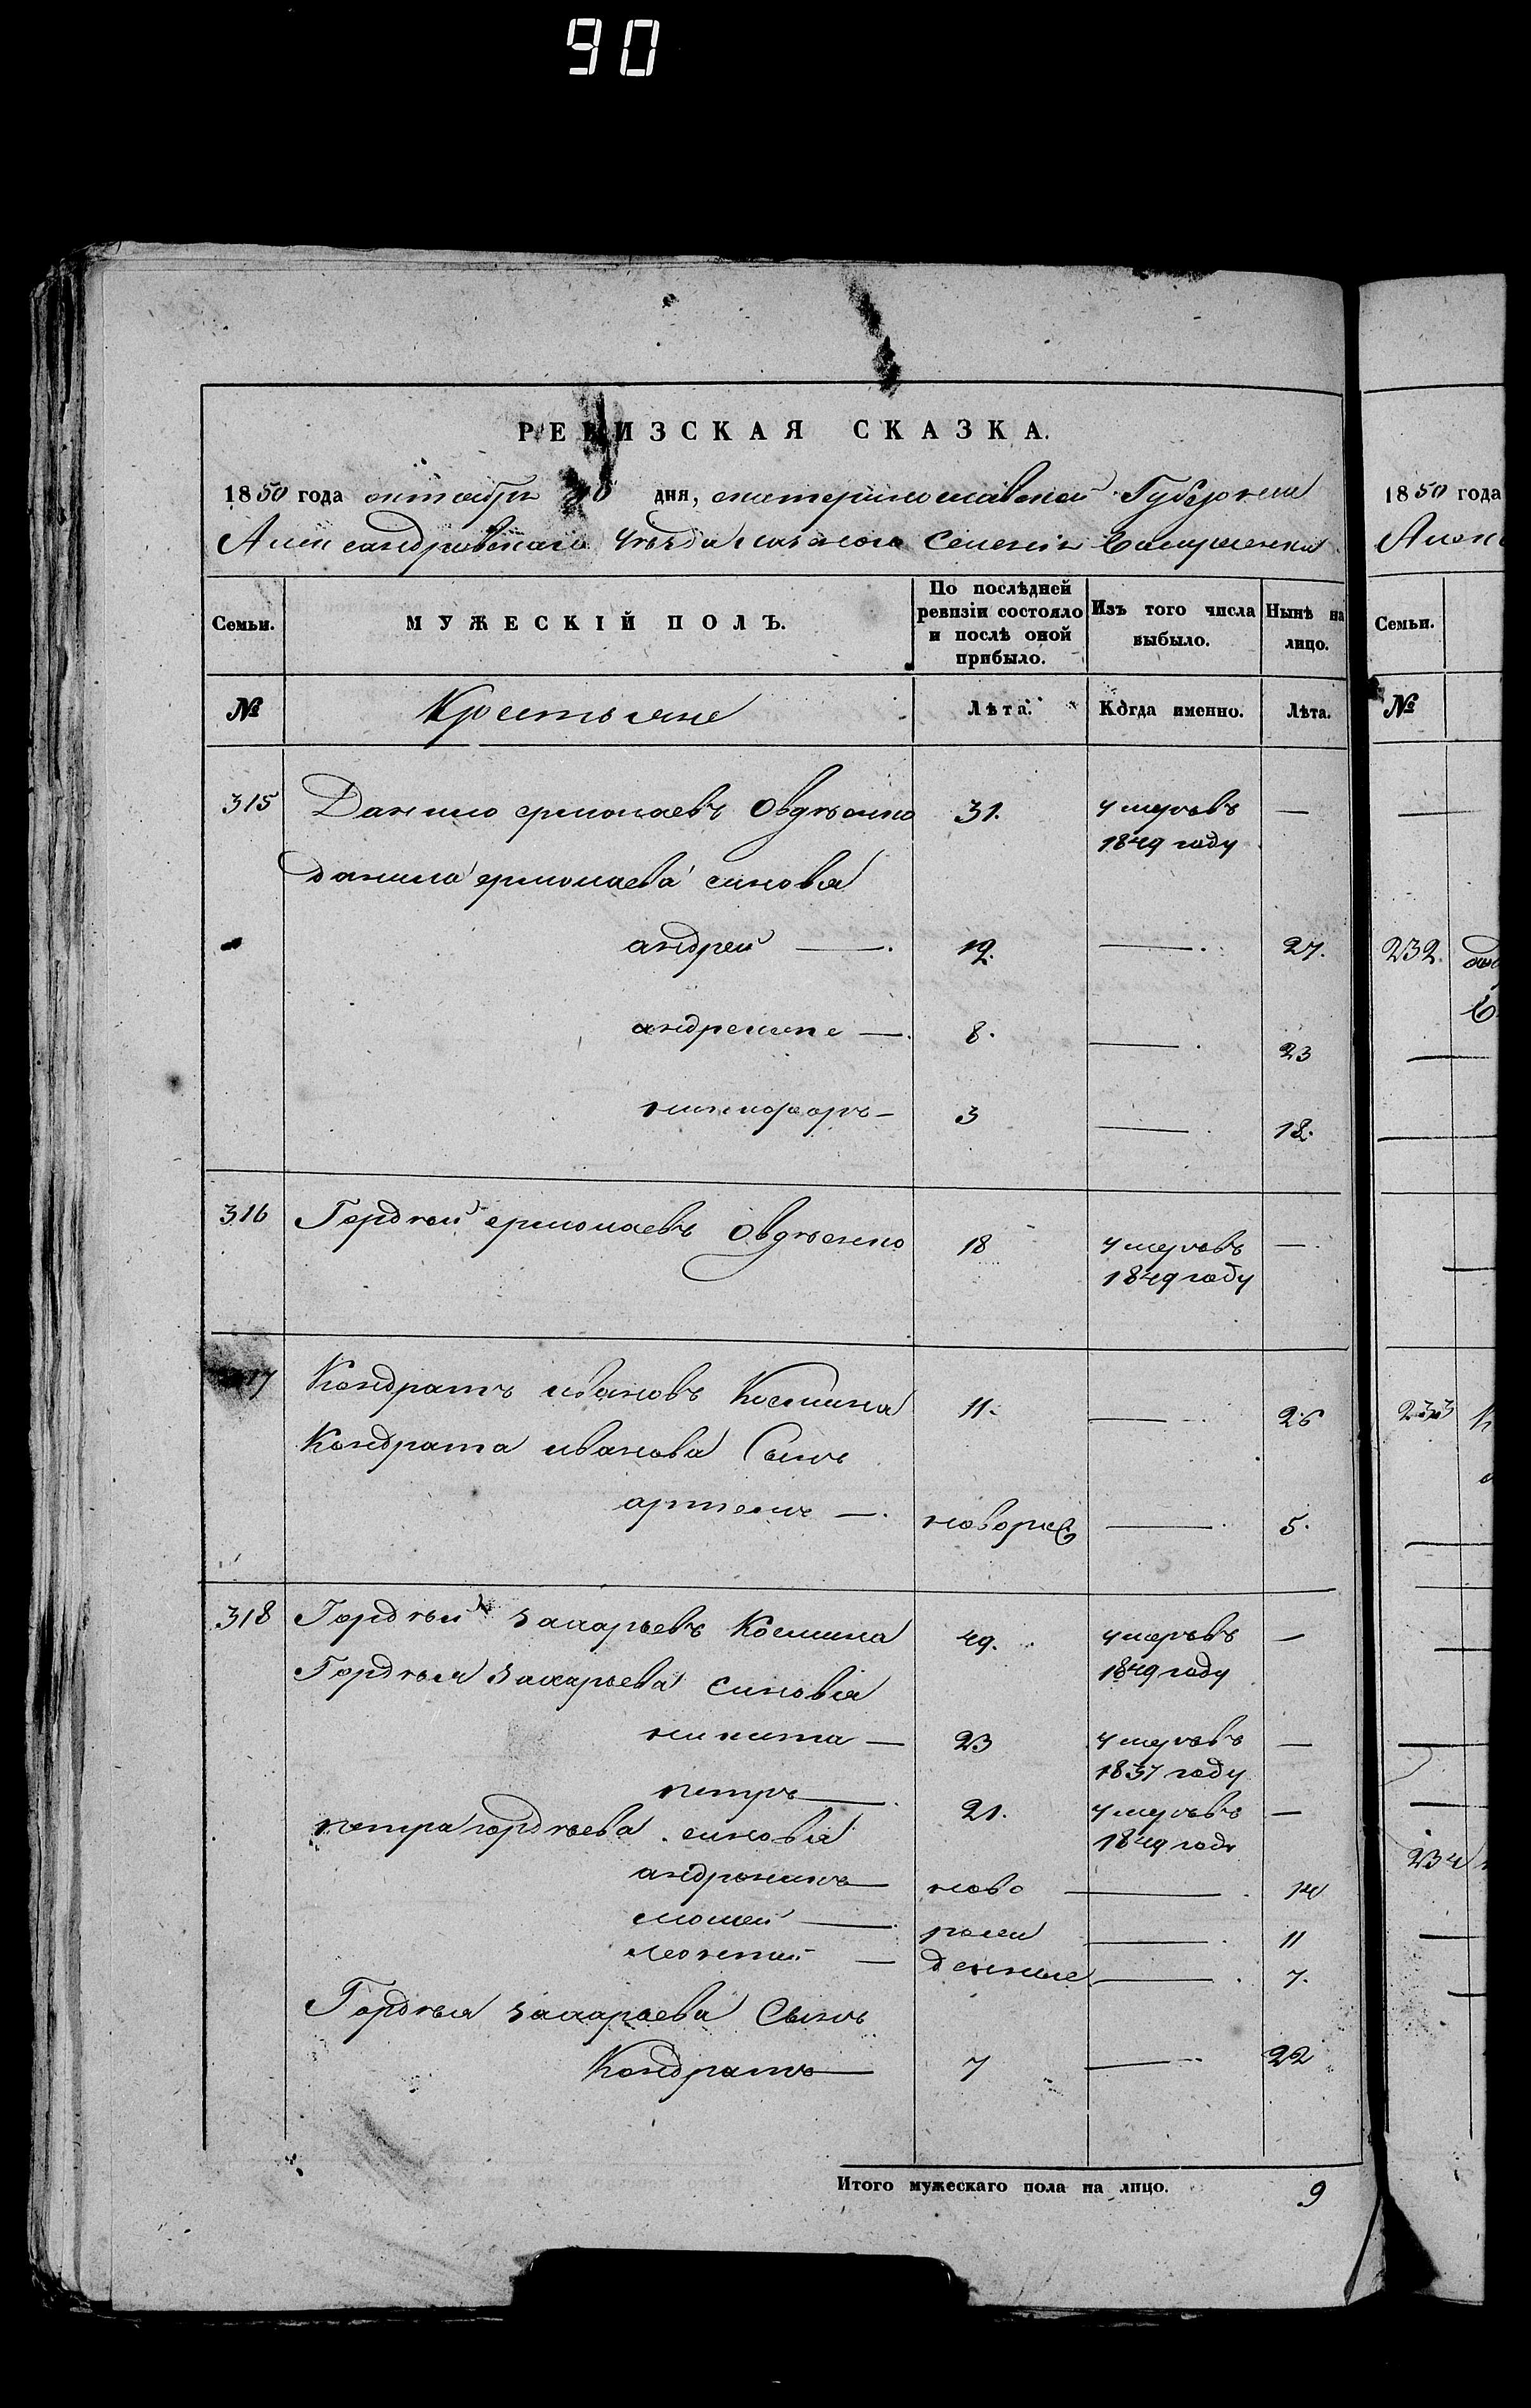 90
РЕВИЗСКАЯ СКАЗКА.
1850 года октября 30 дня, екатеринославской Губернии
Александровскаго Уѣзда казеннаго Селенія
Семьи.
МУЖЕСКІЙ ПОЛЪ.
По послѣдней ревизіи состояло и послѣ оной прибыло.
Изъ того числа выбыло.
Нынѣ на лицо.
№
Крестьяне
Лѣта.
Когда именно.
Лѣта.
315 Данило ермолаевъ Овдѣенко 31. умеръ въ —
1849 году
данила ермолаева синовья
андрей — 12. — 27.
андрей — 8. — 23
никифоръ — 3 — 18.
316 Гордѣй ермолаевъ Овдѣенко 18 умеръ въ —
1849 году
317 Кондратъ ивановъ 11. — 26
Кондрата иванова Сынъ
артемъ — новорж — 5.
318 Гордѣй захарьевъ 49. умеръ въ —
1849 году
Гордѣя захарьева синовья
никита — 23 умеръ въ —
1837 году
петръ — 21. умеръ въ —
1849 году
петра гордѣева синовья
андроникъ — ново — 14
мокей — рож — 11
леонтий — денние — 7.
Гордѣя захарьева Сынъ
Кондратъ — 7 — 22
Итого мужескаго пола на лицо. 9
1850 года
Семьи.
№
232.
233
234